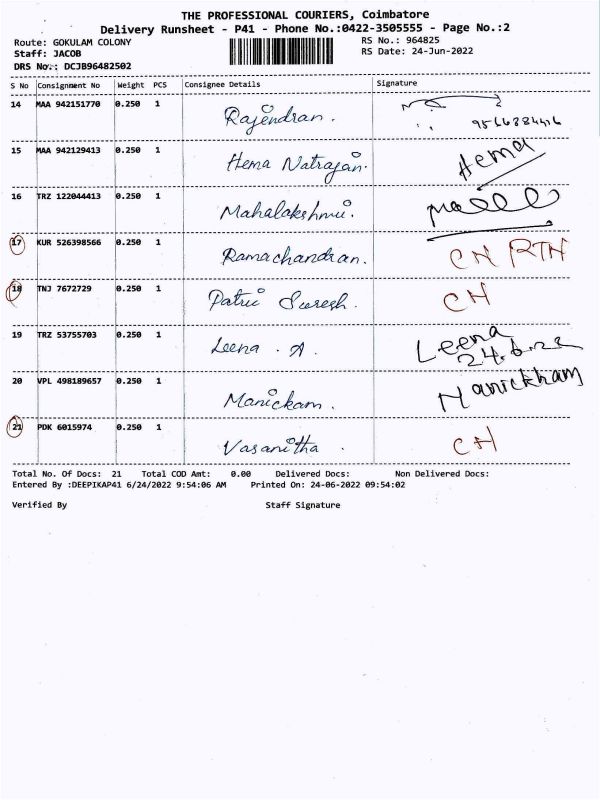 THE PROFESSIONAL COURIERS, Coimbatore
Delivery Runsheet - P41 - Phone No.:0422-3505555 - Page No.:2
Route: GOKULAM COLONY RS No.: 964825
Staff: JACOB RS Date: 24-Jun-2022
DRS No.: DCJB96482502
S No Consignment No Weight PCS Consignee Details Signature
14 MAA 942151770 0.250 1 Rajendran.
15 MAA 942129413 0.250 1 Hema Natrajan. Hema
16 TRZ 122044413 0.250 1 Mahalakshmi.
17 KUR 526398566 0.250 1 Ramachandran. CH RTH
18 TNJ 7672729 0.250 1 Patric Suresh. CH
19 TRZ 53755703 0.250 1 Leena . A. Leena
24.6.22
20 VPL 498189657 0.250 1 Manickam. Manickham
21 PDK 6015974 0.250 1 Vasanitha . CH
Total No. Of Docs: 21 Total COD Amt: 0.00 Delivered Docs: Non Delivered Docs:
Entered By :DEEPIKAP41 6/24/2022 9:54:06 AM Printed On: 24-06-2022 09:54:02
Verified By Staff Signature